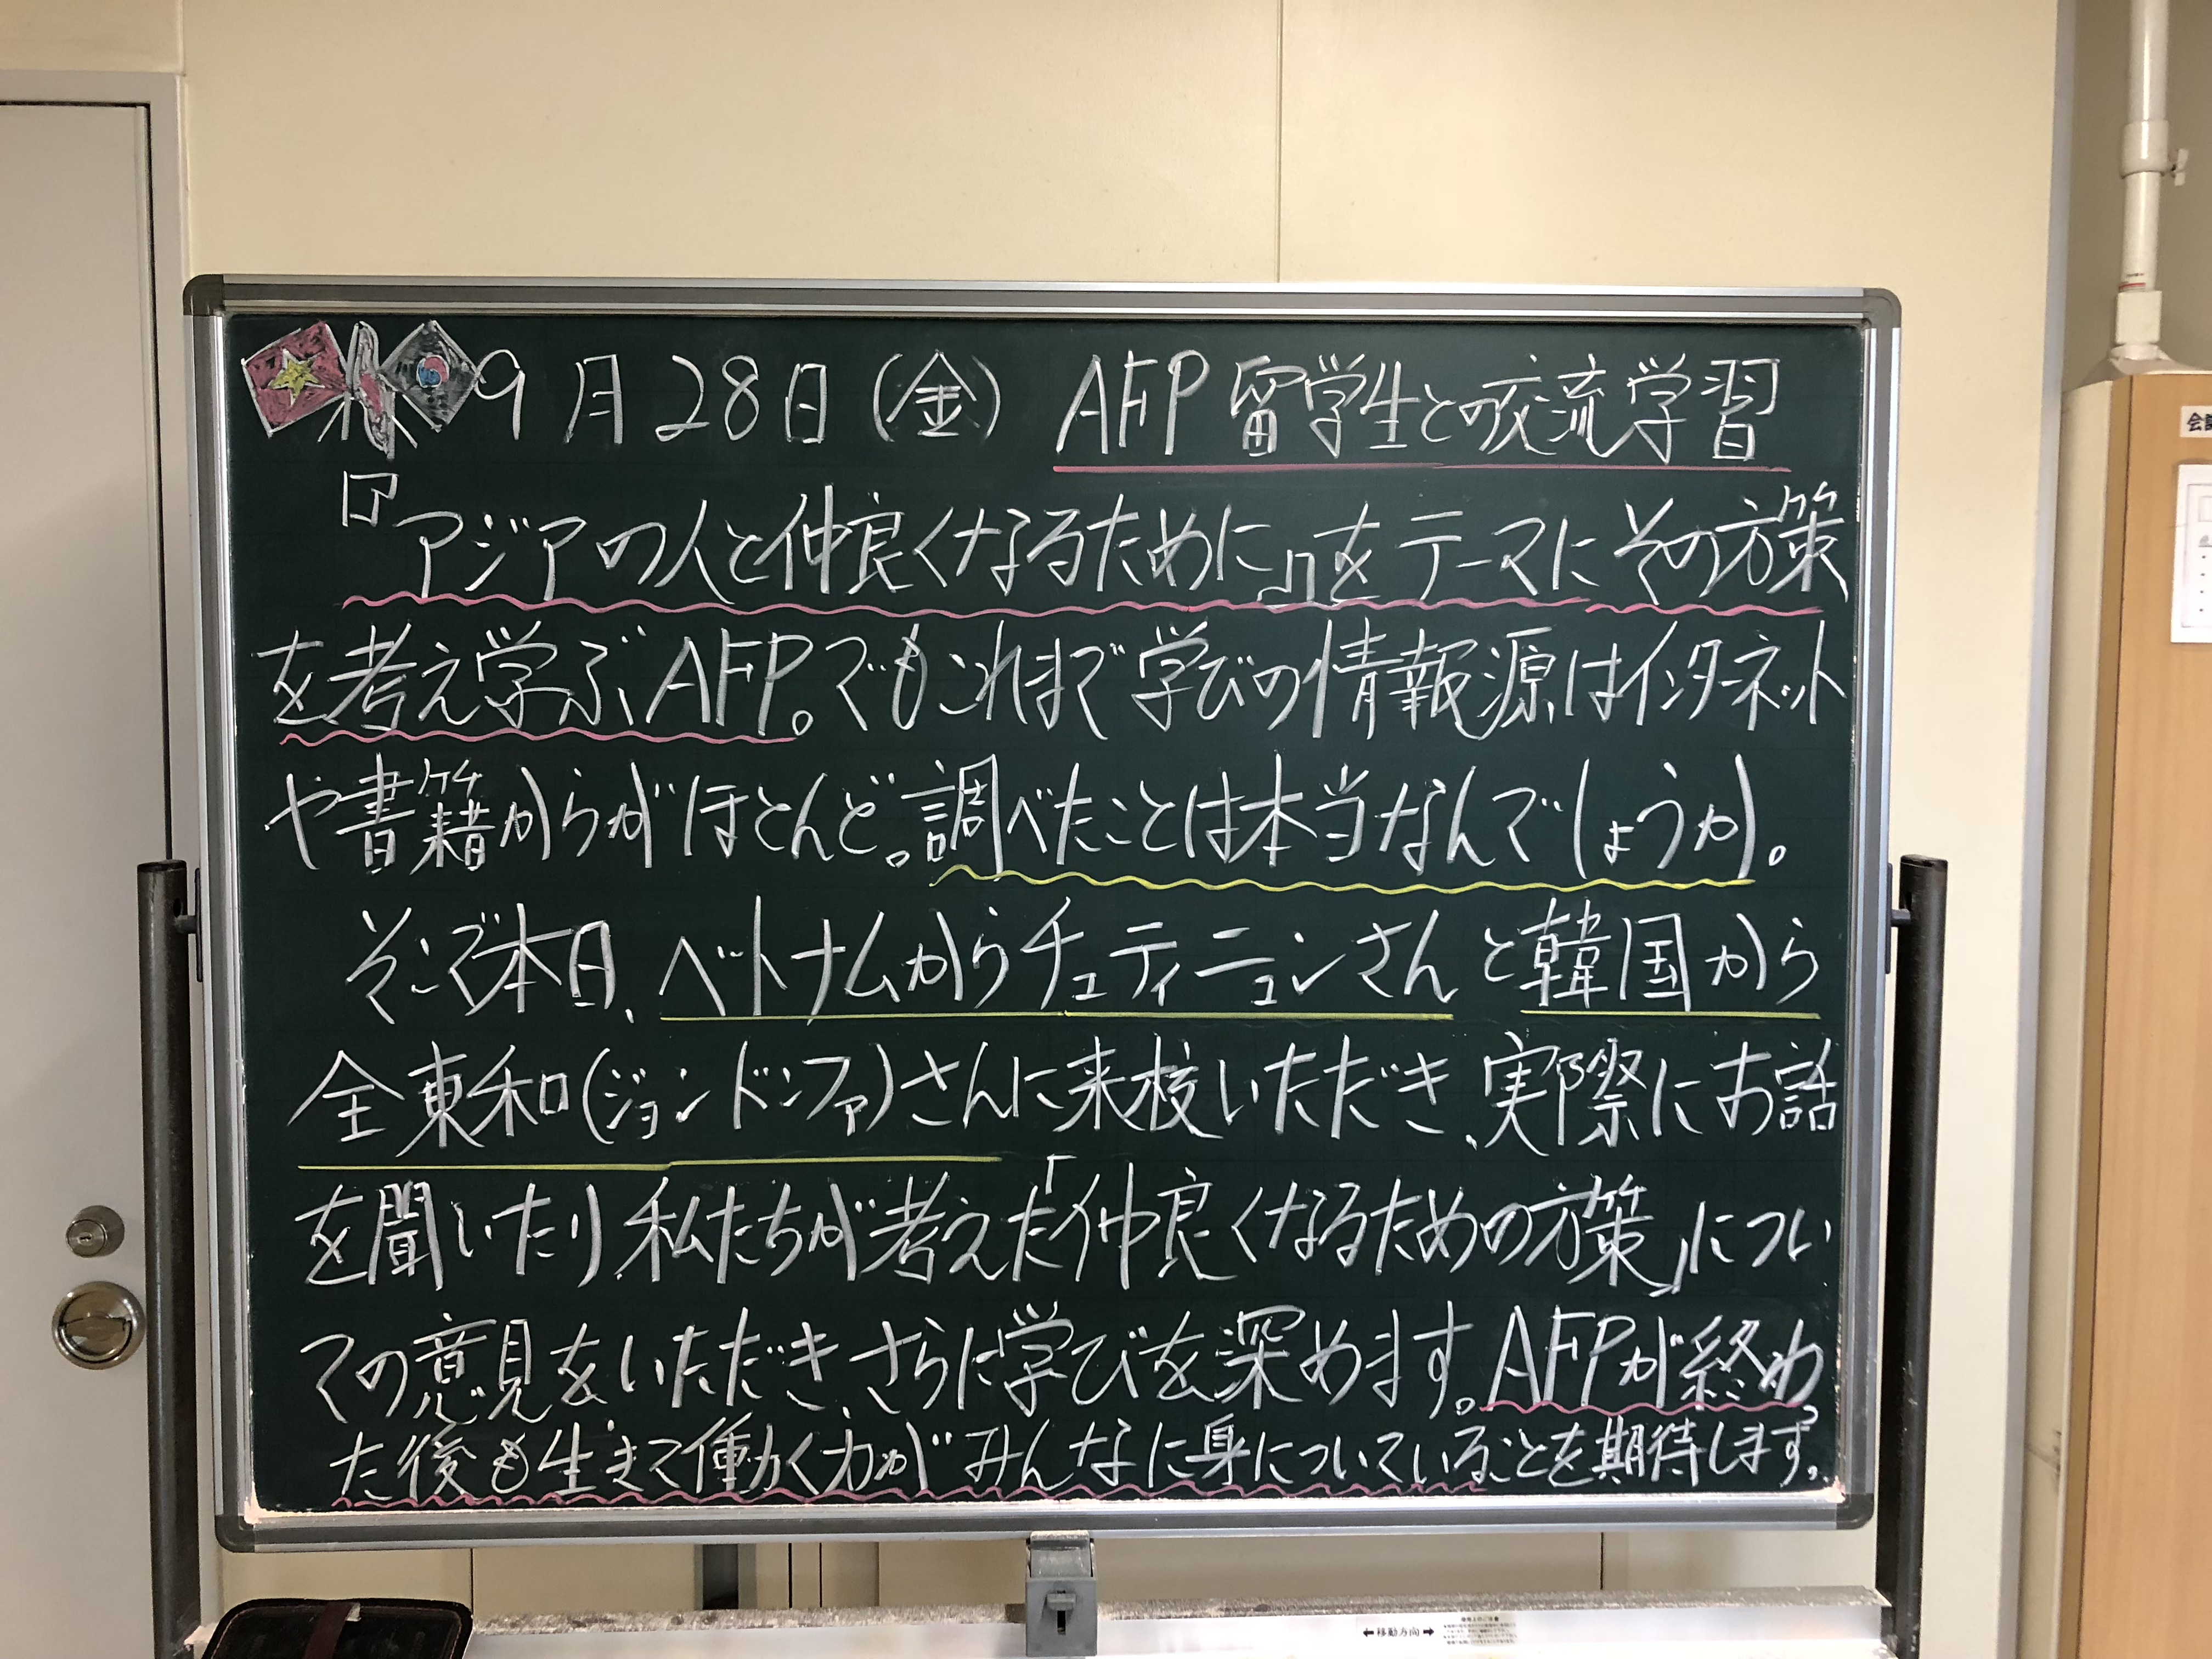 9月28日(金) AFP留学生との交流学習
『アジアの人と仲良くなるために』をテーマにその方策
を考え学ぶ、AFP。でもこれまで学びの情報源はインターネット
や書籍からがほとんど。調べたことは本当なんでしょうか。
そこで本日、ベトナムからチュティニュンさんと韓国から
全東和(ジョンドンファ)さんに来校いただき、実際にお話
を聞いたり、私たちが考えた「仲良くなるための方策」につい
ての意見をいただき、さらに学びを深めます。AFPが終わっ
た後も生きて働く力がみんなに身についていることを期待します。
←移動方向→